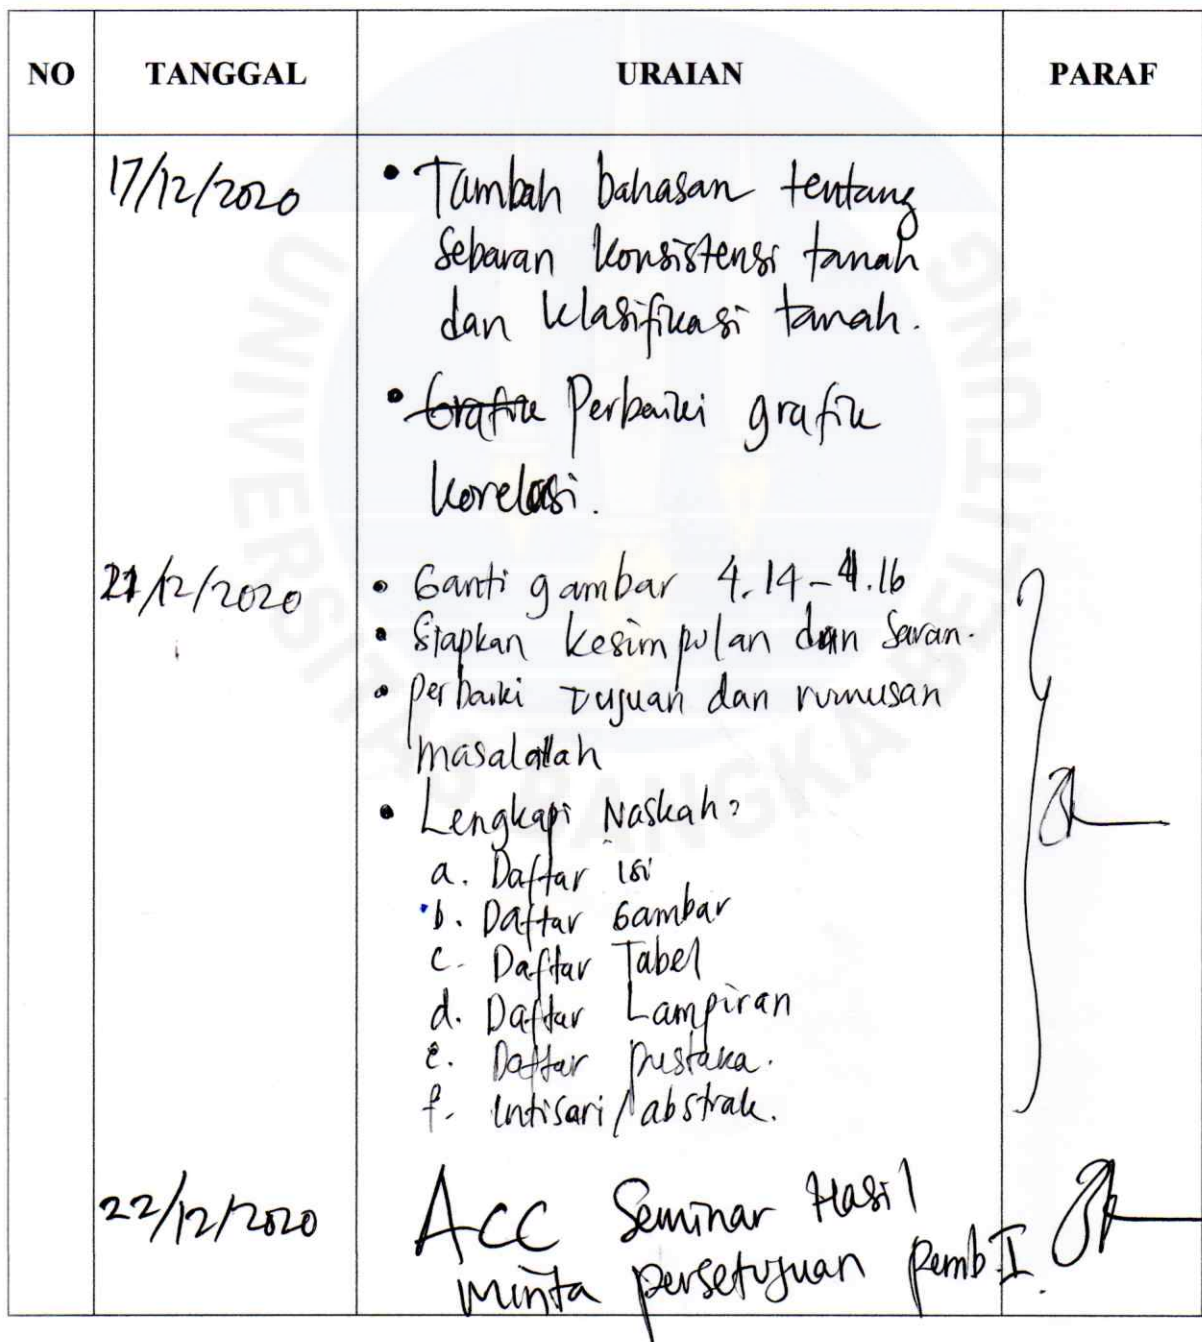 NO TANGGAL URAIAN PARAF
17/12/2020 • Tambah bahasan tentang
sebaran konsistensi tanah
dan klasifikasi tanah.
• Grafik Perbaiki grafik
korelasi.
21/12/2020 • Ganti gambar 4.14-4.16
• Siapkan kesimpulan dan saran.
• Perbaiki Tujuan dan rumusan
masalah
• Lengkapi Naskah:
a. Daftar isi
b. Daftar Gambar
c. Daftar Tabel
d. Daftar Lampiran
e. Daftar pustaka.
f. Intisari/abstrak.
22/12/2020 Acc Seminar Hasil
minta persetujuan pemb. I.
UNIVERSITAS BANGKA BELITUNG